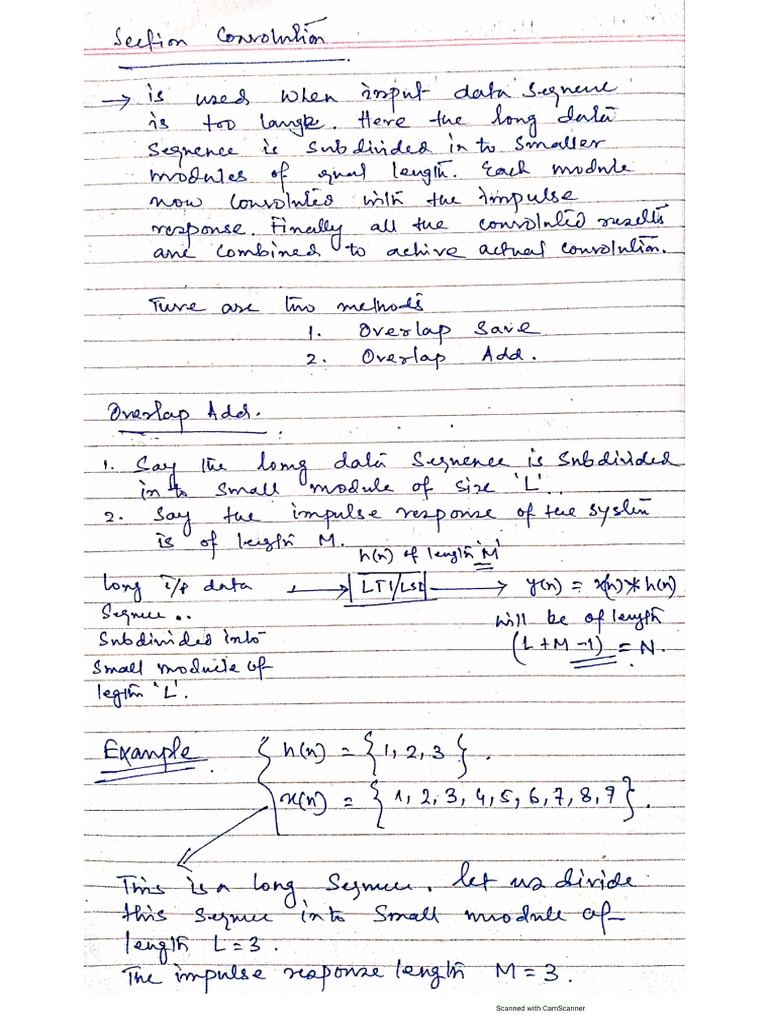 Section Convolution
→ is used when input data sequence
is too large. Here the long data
sequence is subdivided in to smaller
modules of equal length. Each module
now convoluted with the impulse
response. Finally all the convoluted results
are combined to achive actual convolution.
There are two methods
1. Overlap Save
2. Overlap Add.
Overlap Add.
1. Say the long data sequence is subdivided
in to small module of size 'L'..
2. Say the impulse response of the system
is of length M.
h(n) of length 'M'
Long i/p data → LTI/LSI → y(n) = x(n) * h(n)
Sequence..
will be of length
Subdivided into
(L+M-1) = N.
Small module of
length 'L'.
Example { h(n) = {1, 2, 3}.
x(n) = {1, 2, 3, 4, 5, 6, 7, 8, 9}.
This is a long sequence. Let us divide
this sequence into small module of
length L=3.
The impulse response length M=3.
Scanned with CamScanner